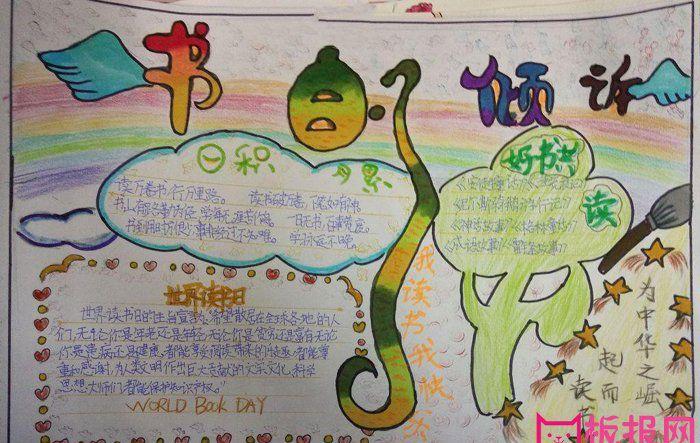 书的倾诉
日积月累
读万卷书,行万里路。
读书破万卷,下笔如有神。
书山有路勤为径,学海无涯苦作舟。
书到用时方恨少,事非经过不知难。
学到老
好书共读
世界读书日
世界读书日的主旨宣言为:希望散居在全球各地的人
们,无论你是年老还是年轻,无论你是贫穷还是富有,无论
你是患病还是健康,都能享受阅读带来的乐趣,都能尊
重和感谢为人类文明作出巨大贡献的文学、文化、科学
思想大师们,都能保护知识产权。”
WORLD BOOK DAY
我读书我快
为中华之崛
起而
读书
板报网